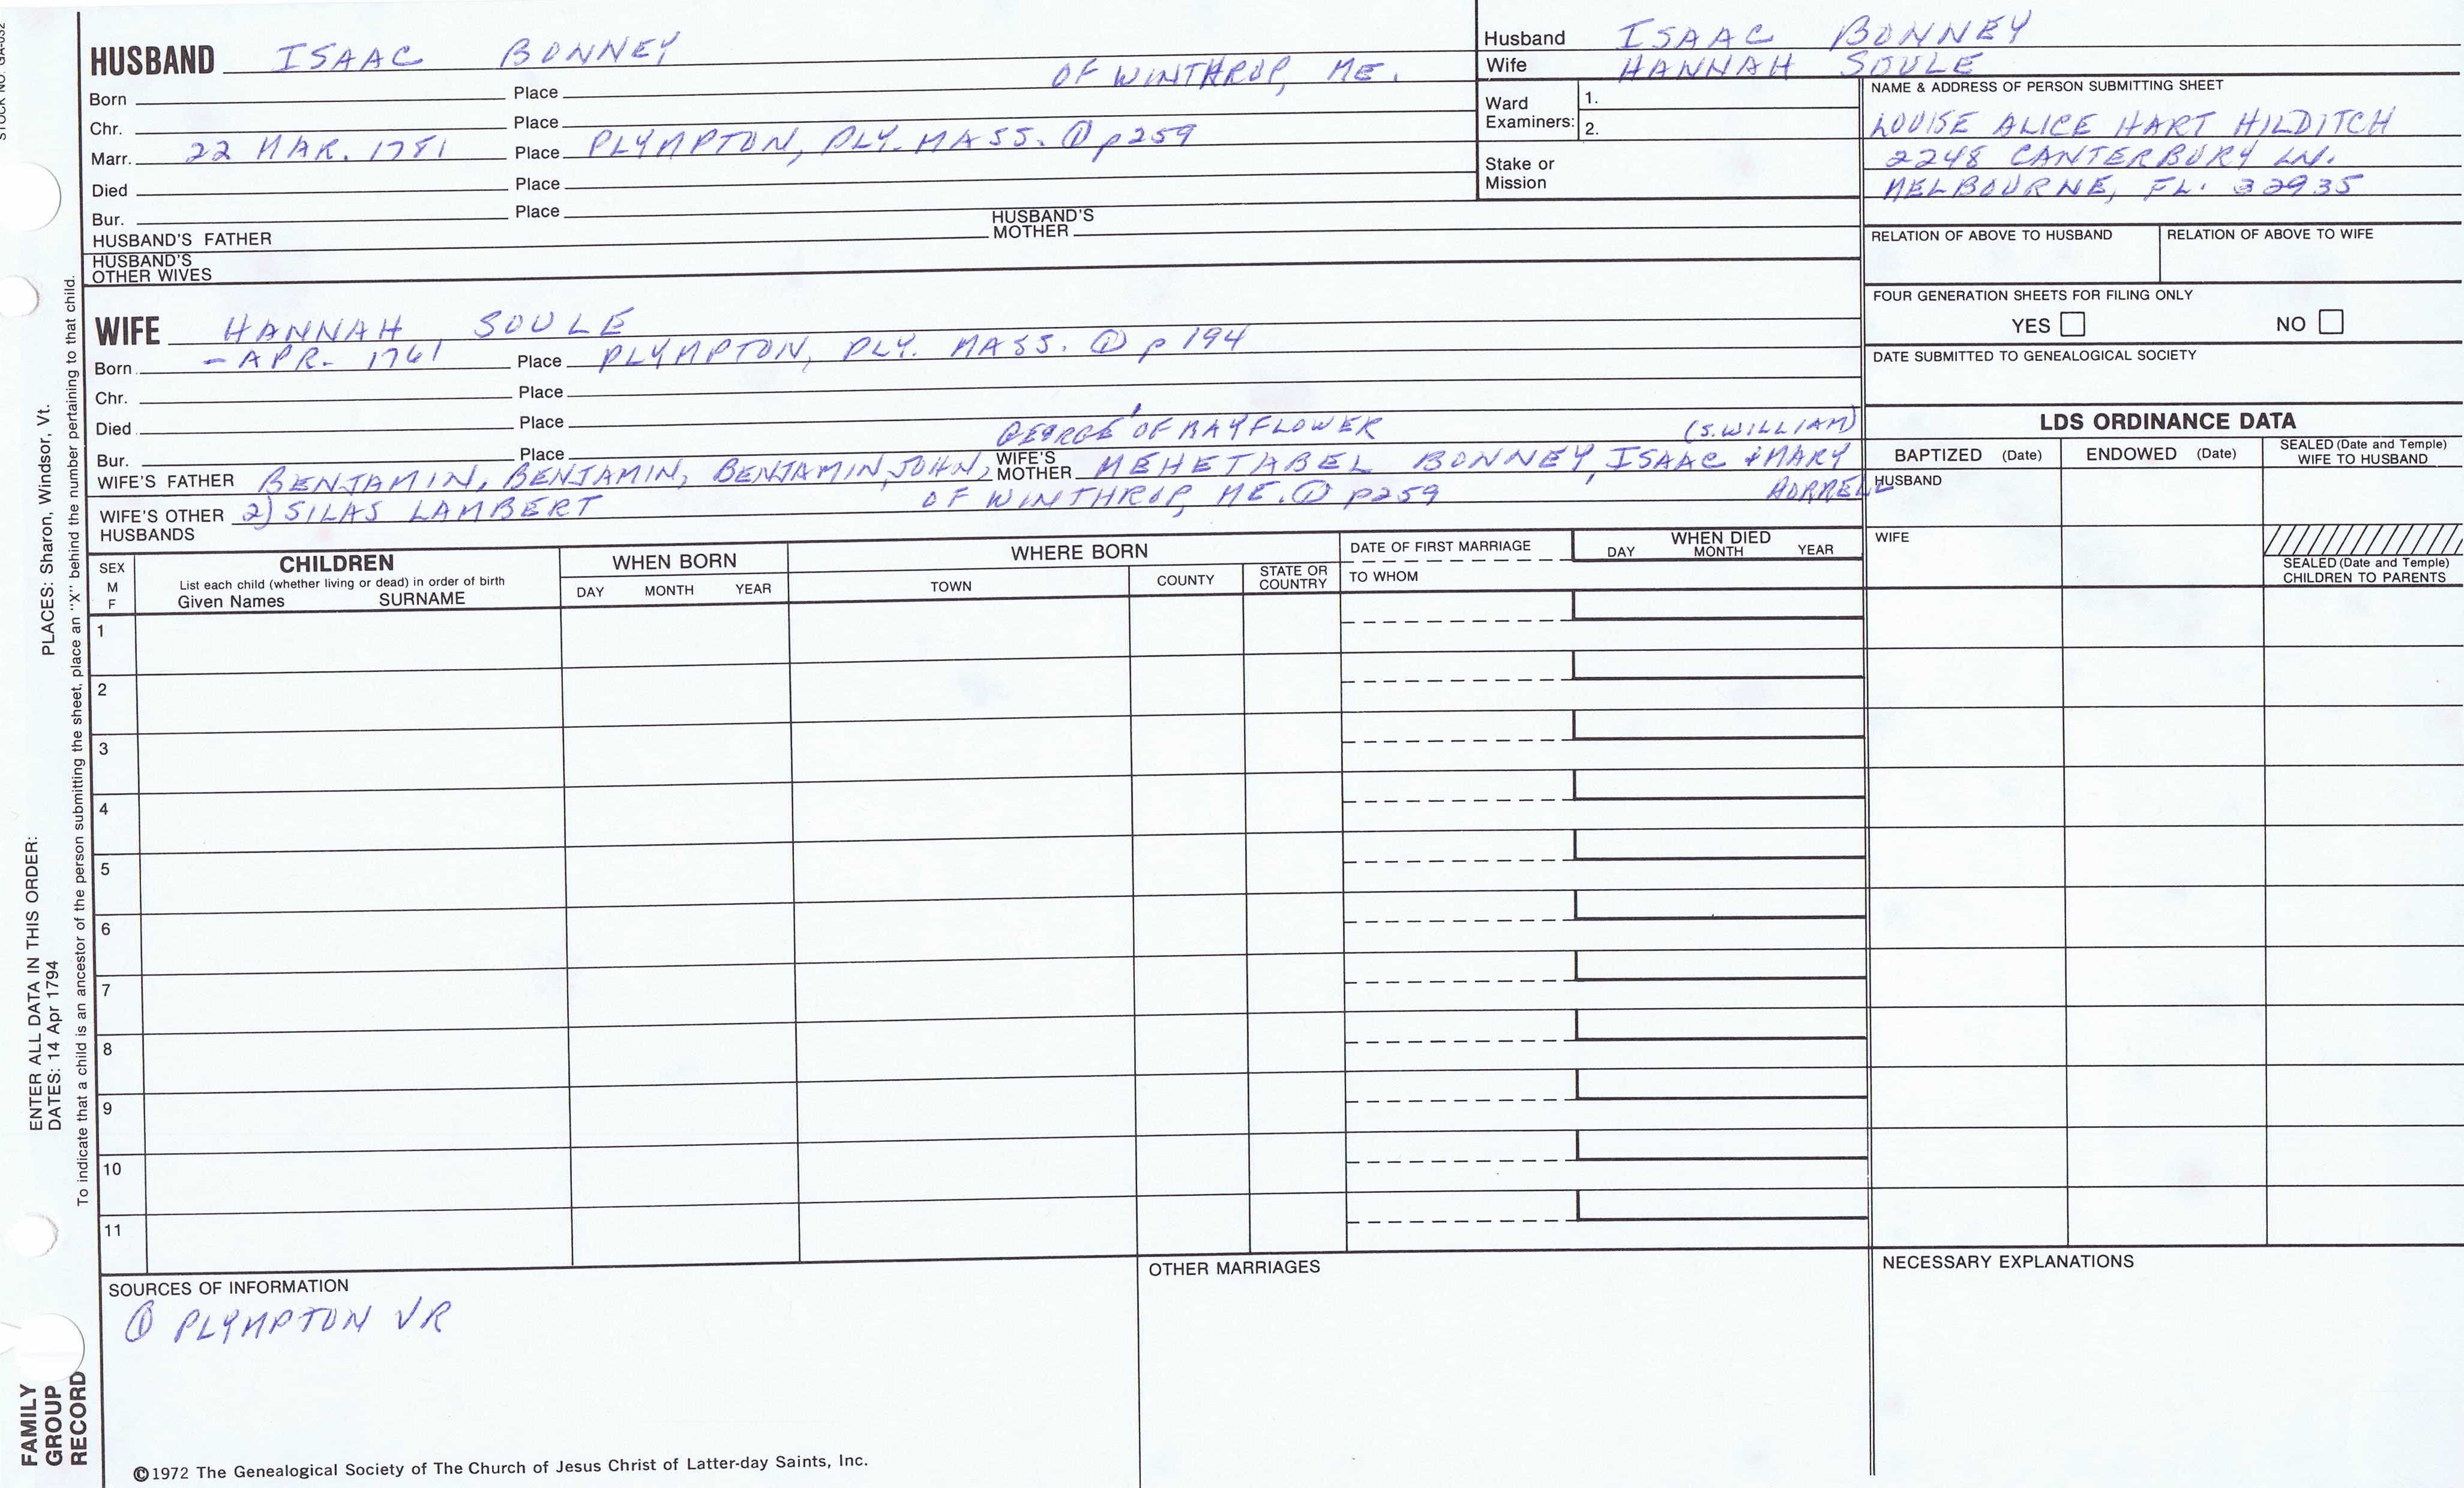 STOCK NO. GA-032
HUSBAND ISAAC BONNEY
OF WINTHROP, ME.
Born Place
Chr. Place
Marr. 22 MAR. 1781 Place PLYMPTON, PLY. MASS. ① p259
Died Place
Bur. Place
HUSBAND'S FATHER HUSBAND'S MOTHER
HUSBAND'S OTHER WIVES
Husband ISAAC BONNEY
Wife HANNAH SOULE
Ward Examiners: 1.
2.
Stake or Mission
NAME & ADDRESS OF PERSON SUBMITTING SHEET
LOUISE ALICE HART HILDITCH
2248 CANTERBURY LN.
MELBOURNE, FL. 32935
RELATION OF ABOVE TO HUSBAND RELATION OF ABOVE TO WIFE
FOUR GENERATION SHEETS FOR FILING ONLY
YES NO
DATE SUBMITTED TO GENEALOGICAL SOCIETY
WIFE HANNAH SOULE
Born - APR. 1761 Place PLYMPTON, PLY. MASS. ① p 194
Chr. Place
Died Place
GEORGE' OF MAYFLOWER (S. WILLIAM)
Bur. Place
WIFE'S FATHER BENJAMIN, BENJAMIN, BENJAMIN, JOHN, WIFE'S MOTHER MEHETABEL BONNEY, ISAAC & MARY
WIFE'S OTHER HUSBANDS 2) SILAS LAMBERT OF WINTHROP, ME. ① p259
LDS ORDINANCE DATA
BAPTIZED (Date) ENDOWED (Date) SEALED (Date and Temple) WIFE TO HUSBAND
HUSBAND
WIFE
SEALED (Date and Temple) CHILDREN TO PARENTS
SEX M F
CHILDREN
List each child (whether living or dead) in order of birth
Given Names SURNAME
WHEN BORN
DAY MONTH YEAR
WHERE BORN
TOWN COUNTY STATE OR COUNTRY
DATE OF FIRST MARRIAGE
TO WHOM
WHEN DIED
DAY MONTH YEAR
1
2
3
4
5
6
7
8
9
10
11
SOURCES OF INFORMATION
① PLYMPTON VR
OTHER MARRIAGES
NECESSARY EXPLANATIONS
©1972 The Genealogical Society of The Church of Jesus Christ of Latter-day Saints, Inc.
FAMILY
GROUP
RECORD
ENTER ALL DATA IN THIS ORDER:
DATES: 14 Apr 1794 PLACES: Sharon, Windsor, Vt.
To indicate that a child is an ancestor of the person submitting the sheet, place an "X" behind the number pertaining to that child.